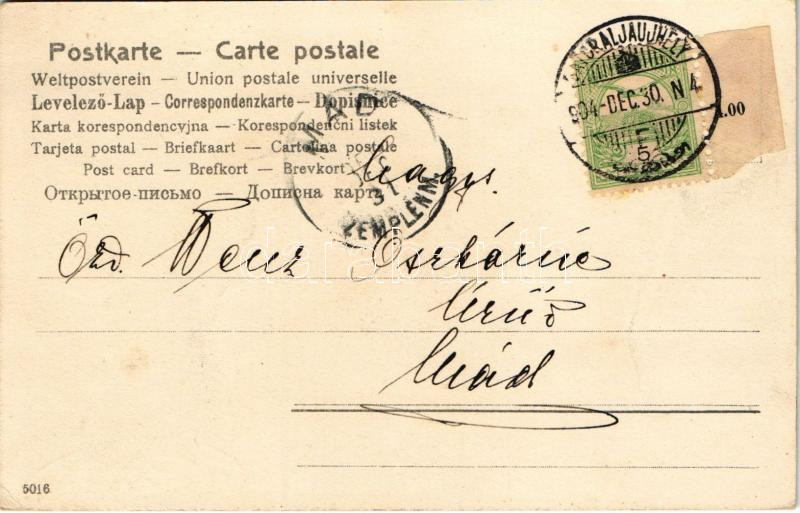 Postkarte — Carte postale
Weltpostverein — Union postale universelle
Levelező-Lap – Correspondenzkarte – Dopisnice
Karta korespondencyjna – Korespondenční listek
Tarjeta postal — Briefkaart — Cartolina postale
Post card — Brefkort — Brevkort
Открытое письмо — Дописна карта
MÁD
31
ZEMPLÉN M.
904-DEC.30. N 4
1.00
Nagys.
Özv. Wenz Oszkárné
Úrnő
Mád
5016
darabanth